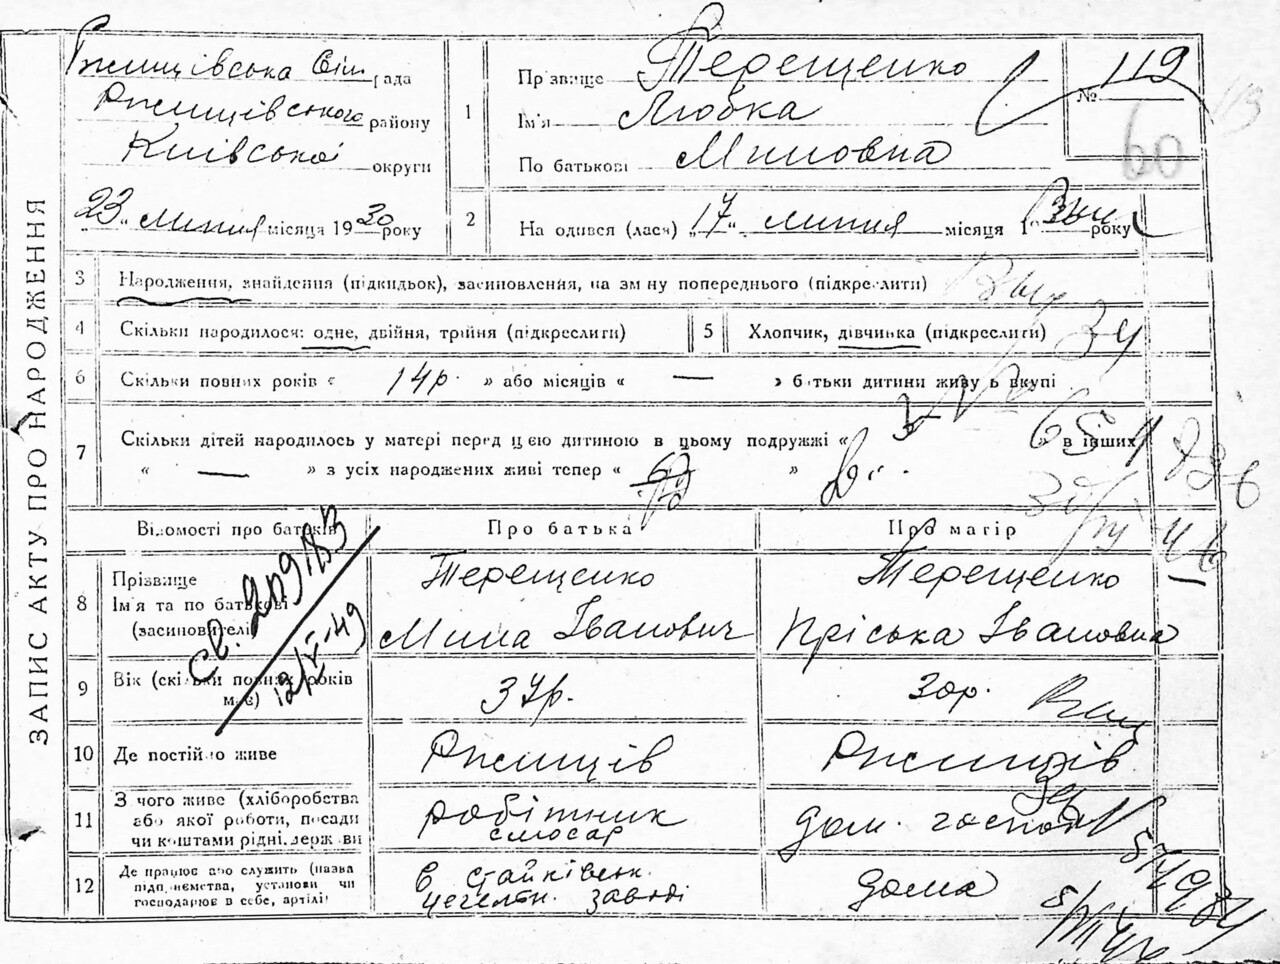 ЗАПИС АКТУ ПРО НАРОДЖЕННЯ
Ржищівська Сіл рада
Ржищівського району
Київської округи
"23" липня місяця 1930 року
1 Прізвище Терещенко
Ім'я Любка
По батькові Миновна
№ 119
60
2 На одився (лася) "17" липня місяця 1 року
3 Народження, знайдення (підкидьок), засиновлення, на зм ну попереднього (підкреслити)
4 Скільки народилося: одне, двійня, трійня (підкреслити)
5 Хлопчик, дівчинка (підкреслити)
6 Скільки повних років « 14р. » або місяців « — » батьки дитини живу ь вкупі
7 Скільки дітей народилось у матері перед цією дитиною в цьому подружжі « 3 » в інших
« — » з усіх народжених живі тепер « »
Відомості про батьків
Про батька
Про матір
8 Прізвище
Ім'я та по батькові
(засиновителі)
Терещенко
Мина Іванович
Терещенко
Пріська Івановна
св. 209183
12/V-49
9 Вік (скільки повних років
має)
37р.
30р.
10 Де постійно живе
Ржищів
Ржищів
11 З чого живе (хліборобства
або якої роботи, посади
чи коштами рідні, держ ви
робітник
слюсар
дом. господ
12 Де працює або служить (назва
підп иємства, установи чи
господарює в себе, артілі
в стайківськ.
цегельн. заводі
дома